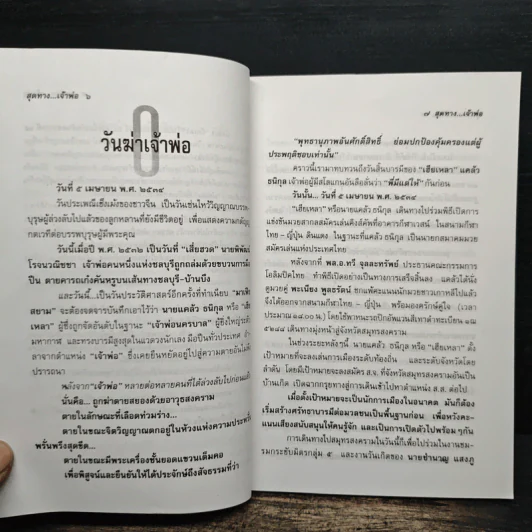 สุดทาง...เจ้าพ่อ ๖
0
วันฆ่าเจ้าพ่อ
วันที่ ๕ เมษายน พ.ศ. ๒๕๓๔
วันประเพณีเช็งเม้งของชาวจีน เป็นวันเซ่นไหว้วิญญาณบรรพ-
บุรุษผู้ล่วงลับไปแล้วของลูกหลานที่ยังมีชีวิตอยู่ เพื่อแสดงความกตัญญู
กตเวทีต่อบรรพบุรุษผู้มีพระคุณ
วันนี้เมื่อปี พ.ศ. ๒๕๓๒ เป็นวันที่ "เสี่ยฮวด" นายพิพัฒน์
โรจนวณิชชา เจ้าพ่อคนหนึ่งแห่งชลบุรีถูกถล่มด้วยขบวนการมือ
ปืน ตายคารถเก๋งคันหรูบนเส้นทางชลบุรี-บ้านบึง
และวันนี้...เป็นวันประวัติศาสตร์อีกครั้งที่ทำเนียบ "มาเฟีย
สยาม" จะต้องจดจารบันทึกเอาไว้ว่า นายแคล้ว ธนิกุล หรือ "เฮีย
เหลา" ผู้ซึ่งถูกจัดอันดับในฐานะ "เจ้าพ่อนครบาล" ผู้ยิ่งใหญ่ร่ำรวย
มหากาฬ และทรงบารมีสูงสุดในแวดวงนักเลง มือปืนทั่วประเทศ อำ
ลาจากตำแหน่ง "เจ้าพ่อ" ซึ่งเคยยืนหยัดอยู่ไปสู่ความตายอันไม่พึง
ปรารถนา
หลังจาก "เจ้าพ่อ" หลายต่อหลายคนที่ได้ล่วงลับไปก่อนแล้ว
นั่นคือ... ถูกฆ่าตายสยองด้วยอาวุธสงคราม
ตายในลักษณะที่เลือดท่วมร่าง...
ตายในขณะจิตวิญญาณตกอยู่ในห้วงแห่งความประหวั่น
พรั่นพรึงสุดขีด...
ตายในขณะมีพระเครื่องชั้นยอดแขวนเต็มคอ
เพื่อพิสูจน์และยืนยันให้ได้ประจักษ์ถึงสัจธรรมที่ว่า
๗ สุดทาง...เจ้าพ่อ
"พุทธานุภาพอันศักดิ์สิทธิ์ ย่อมปกป้องคุ้มครองแต่ผู้
ประพฤติชอบเท่านั้น"
คราวนี้เรามาทบทวนถึงวันสิ้นบารมีของ "เฮียเหลา" แคล้ว
ธนิกุล เจ้าพ่อผู้มีสโลแกนอันลือลั่นว่า "พี่มีแต่ให้" กันก่อน
วันนั้น... วันที่ ๕ เมษายน พ.ศ. ๒๕๓๔
"เฮียเหลา" หรือนายแคล้ว ธนิกุล เดินทางไปร่วมพิธีเปิดการ
แข่งขันมวยสากลสมัครเล่นชิงคิงส์คัพที่อาคารกีฬาเวสน์ ในสนามกีฬา
ไทย - ญี่ปุ่น ดินแดง ในฐานะที่แคล้ว ธนิกุล เป็นนายกสมาคมมวย
สมัครเล่นแห่งประเทศไทย
หลังจากที่ พล.อ.ทวี จุลละทรัพย์ ประธานคณะกรรมการ
โอลิมปิคไทย ทำพิธีเปิดอย่างเป็นทางการเสร็จสิ้นลง แคล้วได้นั่ง
ดูมวยคู่ พะเนียง พูลธรัตน์ ชกแพ้คะแนนนักมวยชาวเกาหลีไปแล้ว
จึงได้ออกจากสนามกีฬาไทย - ญี่ปุ่น พร้อมองครักษ์คู่ใจ (เวลา
ประมาณ ๑๘.๐๐ น.) โดยใช้พาหนะรถปิกอัพแวนสีเทาดำทะเบียน
๕๒๘๘ เดินทางมุ่งหน้าสู่จังหวัดสมุทรสงคราม
ในช่วงระยะหลังๆ นี้ นายแคล้ว ธนิกุล หรือ "เฮียเหลา" ตั้ง
เป้าหมายที่จะลงเล่นการเมืองระดับท้องถิ่น และระดับจังหวัดโดย
ลำดับ โดยมีเป้าหมายจะลงสมัคร สจ. ที่จังหวัดสมุทรสงครามอันเป็น
บ้านเกิด เปิดฉากกรุยทางสู่การเดินเข้าไปหาตำแหน่ง ส.ส. ต่อไป
เมื่อตั้งเป้าหมายจะเป็นนักการเมืองในอนาคต มันก็ต้อง
เริ่มสร้างศรัทธาบารมีต่อมวลชนเป็นพื้นฐานก่อน เพื่อหวังคะ-
แนนเสียงสนับสนุนให้คนรู้จัก และเป็นการเปิดตัวไปพร้อมๆกัน
การเดินทางไปสมุทรสงครามในวันนี้ก็เพื่อไปร่วมในงานชม-
รมกระชับมิตรกลุ่ม ๕ และงานวันเกิดของ นายชำนาญ แสงภู่